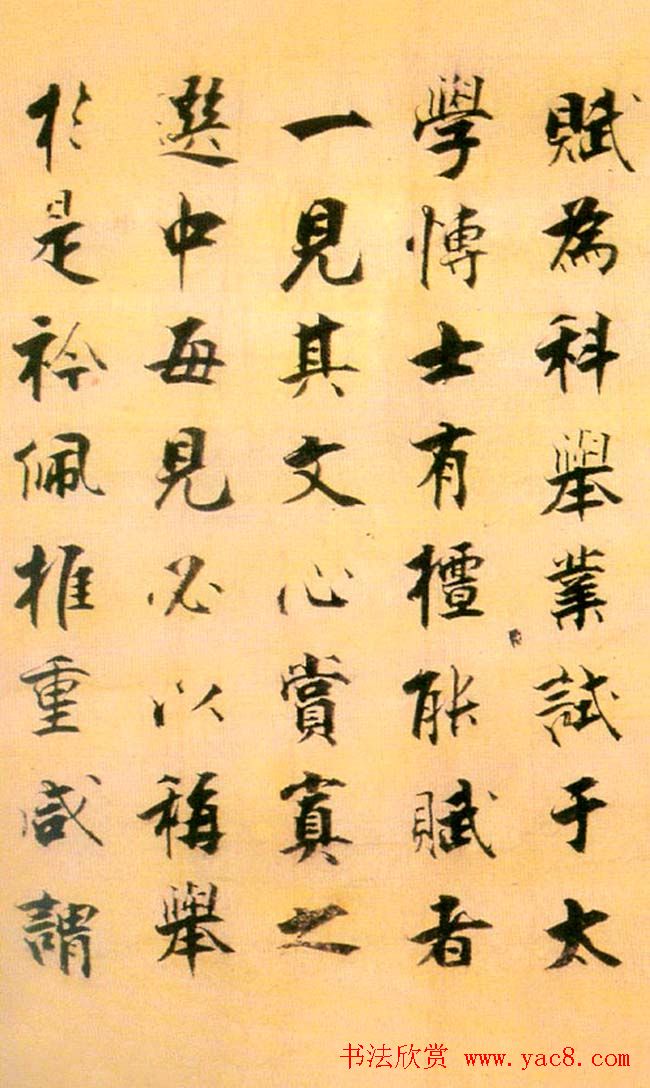 賦為科舉業試于太
學博士有擅能賦者
一見其文心賞寘之
選中每見必以稱舉
於是衿佩推重咸謂
书法欣赏 www.yac8.com